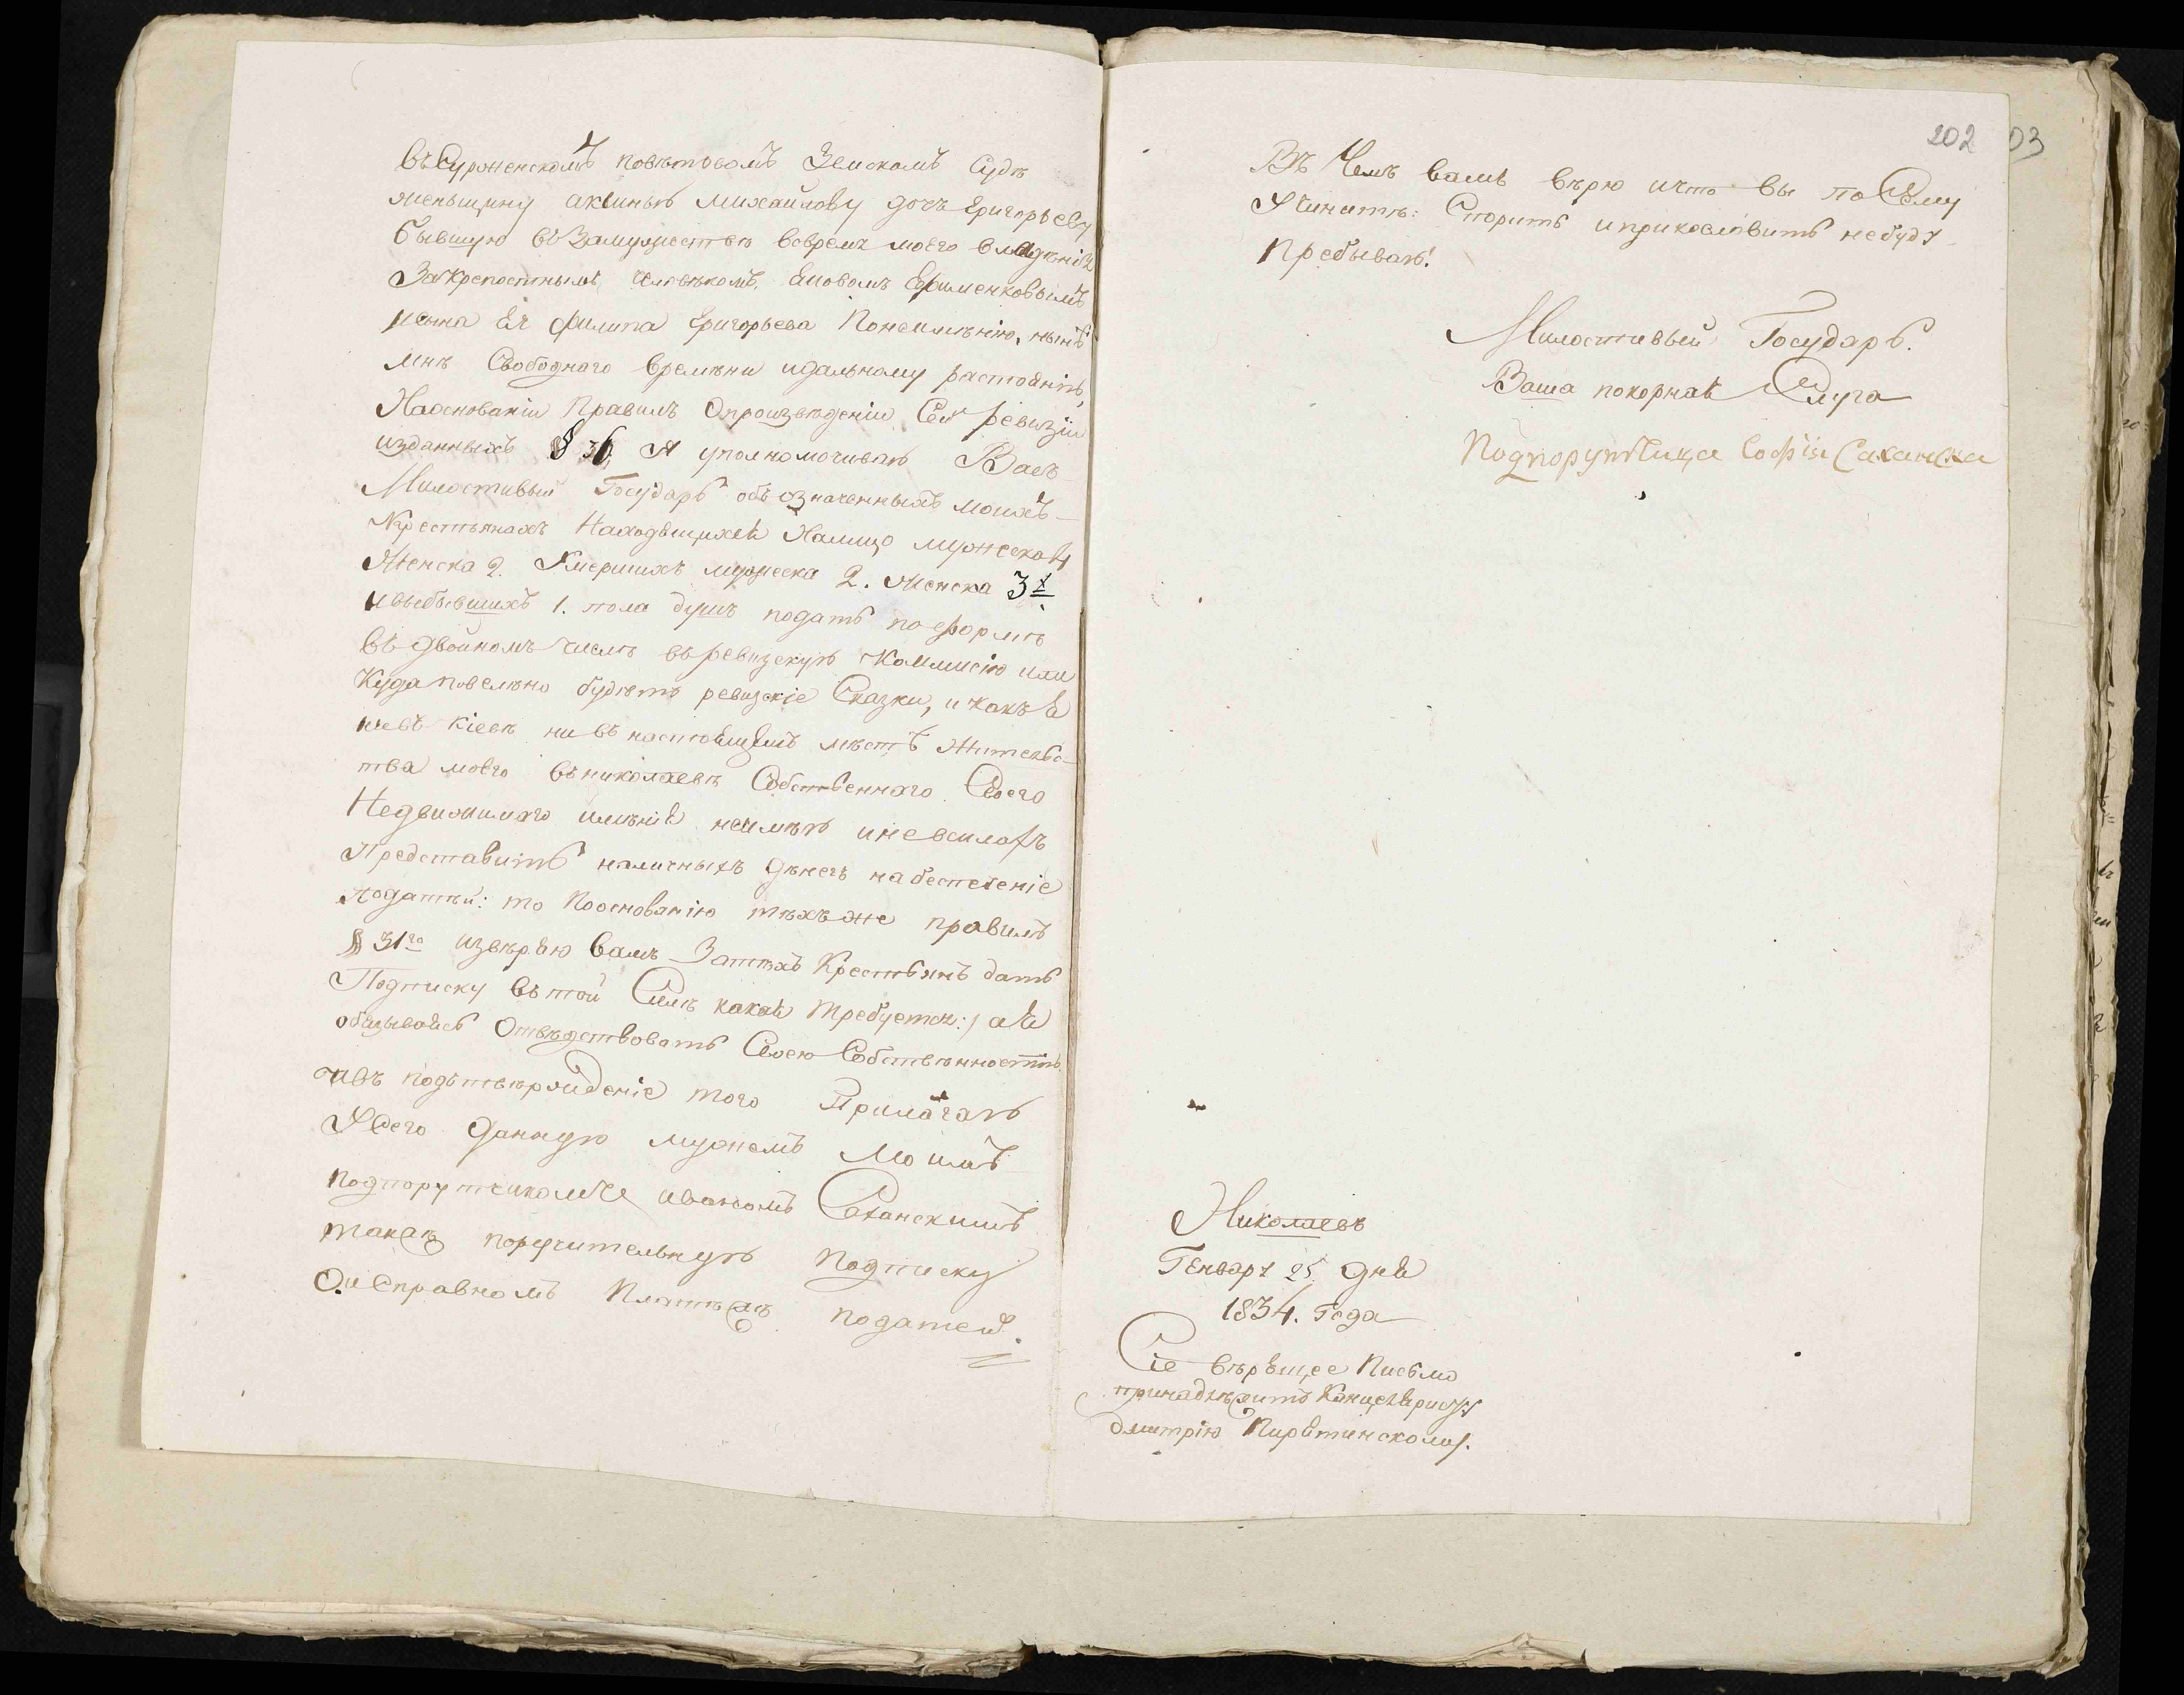 въ Суражскомъ повѣтовомъ Земскомъ Судѣ
женьщину аксинью михайлову дочь Григорьеву
бывшую въ Замужествѣ вовремя моего владѣнія
Закрепостнымъ человѣкомъ, Ефименковымъ
исына Ея филипа Григорьева Понеимѣнію, нынѣ
мнѣ Свободнаго времѣни идальному растоянію,
Наоснованіи Правилъ Опроизвѣденіи Сей ревизіи
изданныхъ § 36, Я уполномочиваю Васъ
Милостивый Государь обозначенныхъ моихъ
Крестьянахъ Находящихся Налицо мужеска 4
Женска 2. Умершихъ мужеска 2. Женска 3х
ивыбывшихъ 1. пола душъ подать по формѣ
въ двойномъ числѣ въ ревизскую Коммисію или
Куда повелѣно будѣтъ ревизскіе Сказки, и какъ я
ниевъ кіевѣ ни въ настоящемъ мѣстѣ Жительс-
тва моего въ николаевѣ Собственнаго Своего
Недвижимаго имѣнія неимѣю иневсилахъ
Представить наличныхъ Дѣнегъ набеспеченіе
податей: то Пооснованію тѣхъ же правилъ
§ 31го извѣряю вамъ Затѣхъ Крестьянъ дать
Подписку въ той Силѣ какая требуется:/ а я
обязываюсь Отвѣдствовать Своею Собствѣнностію
ивъ подътвѣрждѣніе того Прилагаю
У сего Данную мужемъ Моимъ
подпорутчикомъ иваномъ Саханскимъ
такаю поручительную Подписку
О исправномъ Платѣжѣ податей.
202 03
Въ Чемъ вамъ вѣрю ичто вы по Сему
Учините: Спорить ипрекословить небуду
Пребываю!
Милостивый Государь.
Ваша покорная Слуга
Подпорутчица Софія Саханска
Николаевъ
Генваря 25 дня
1834. Года
Сіе вѣрющее Письмо
принадлежитъ Канцеляристу
дмитрію Пирятинскому.